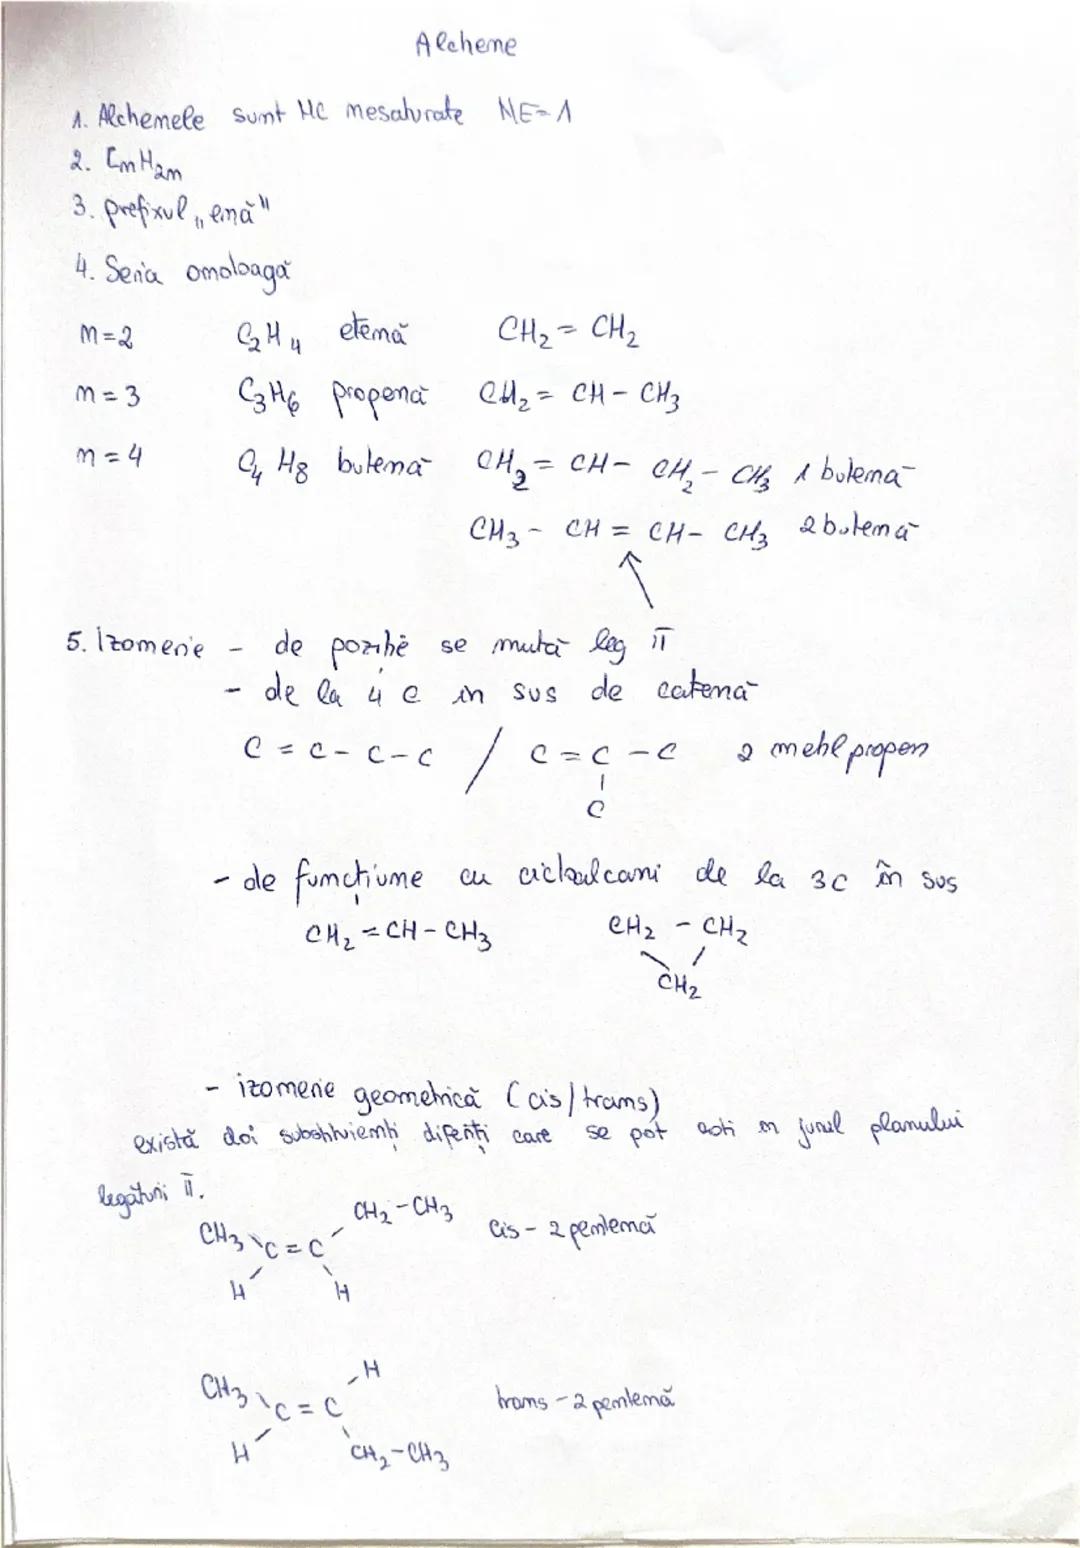 Alchene
1. Alchenele sunt HC nesaturate NE=1
2. CnH2n
3. prefixul „enă"
4. Seria omoloagă
n=2 C2H4 etenă CH2 = CH2
n=3 C3H6 propenă CH2 = CH - CH3
n=4 C4H8 butenă CH2 = CH - CH2 - CH3 1 butenă
CH3 - CH = CH - CH3 2 butenă
5. Izomerie - de poziție se mută leg π
- de la 4 C in sus de catenă
C = C - C - C / C = C - C 2 metilpropen
C
- de funcțiune cu cicloalcani de la 3C în sus
CH2 = CH - CH3 CH2 - CH2
CH2
- izomerie geometrică (cis/trans)
există doi substituienți diferiți care se pot roti in jurul planului
legăturii π.
CH2-CH3
CH3 C=C cis - 2 pentenă
H H
H
CH3 C=C trans - 2 pentenă
H CH2-CH3